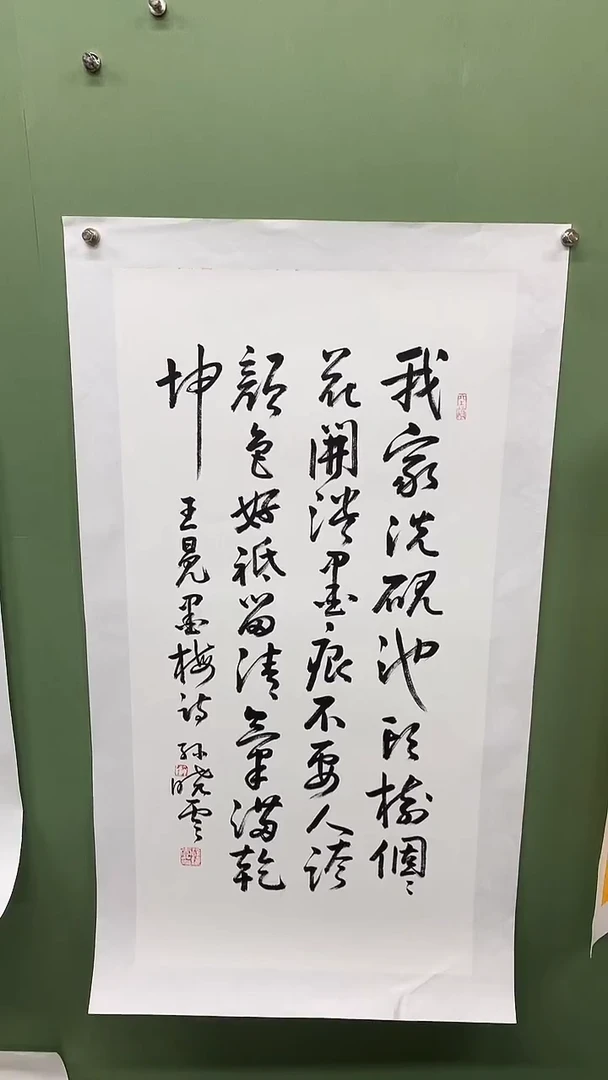 我家洗硯池頭樹個々
花開淡墨痕不要人誇
顏色好祗留清氣滿乾
坤 王冕墨梅詩 孫曉雲